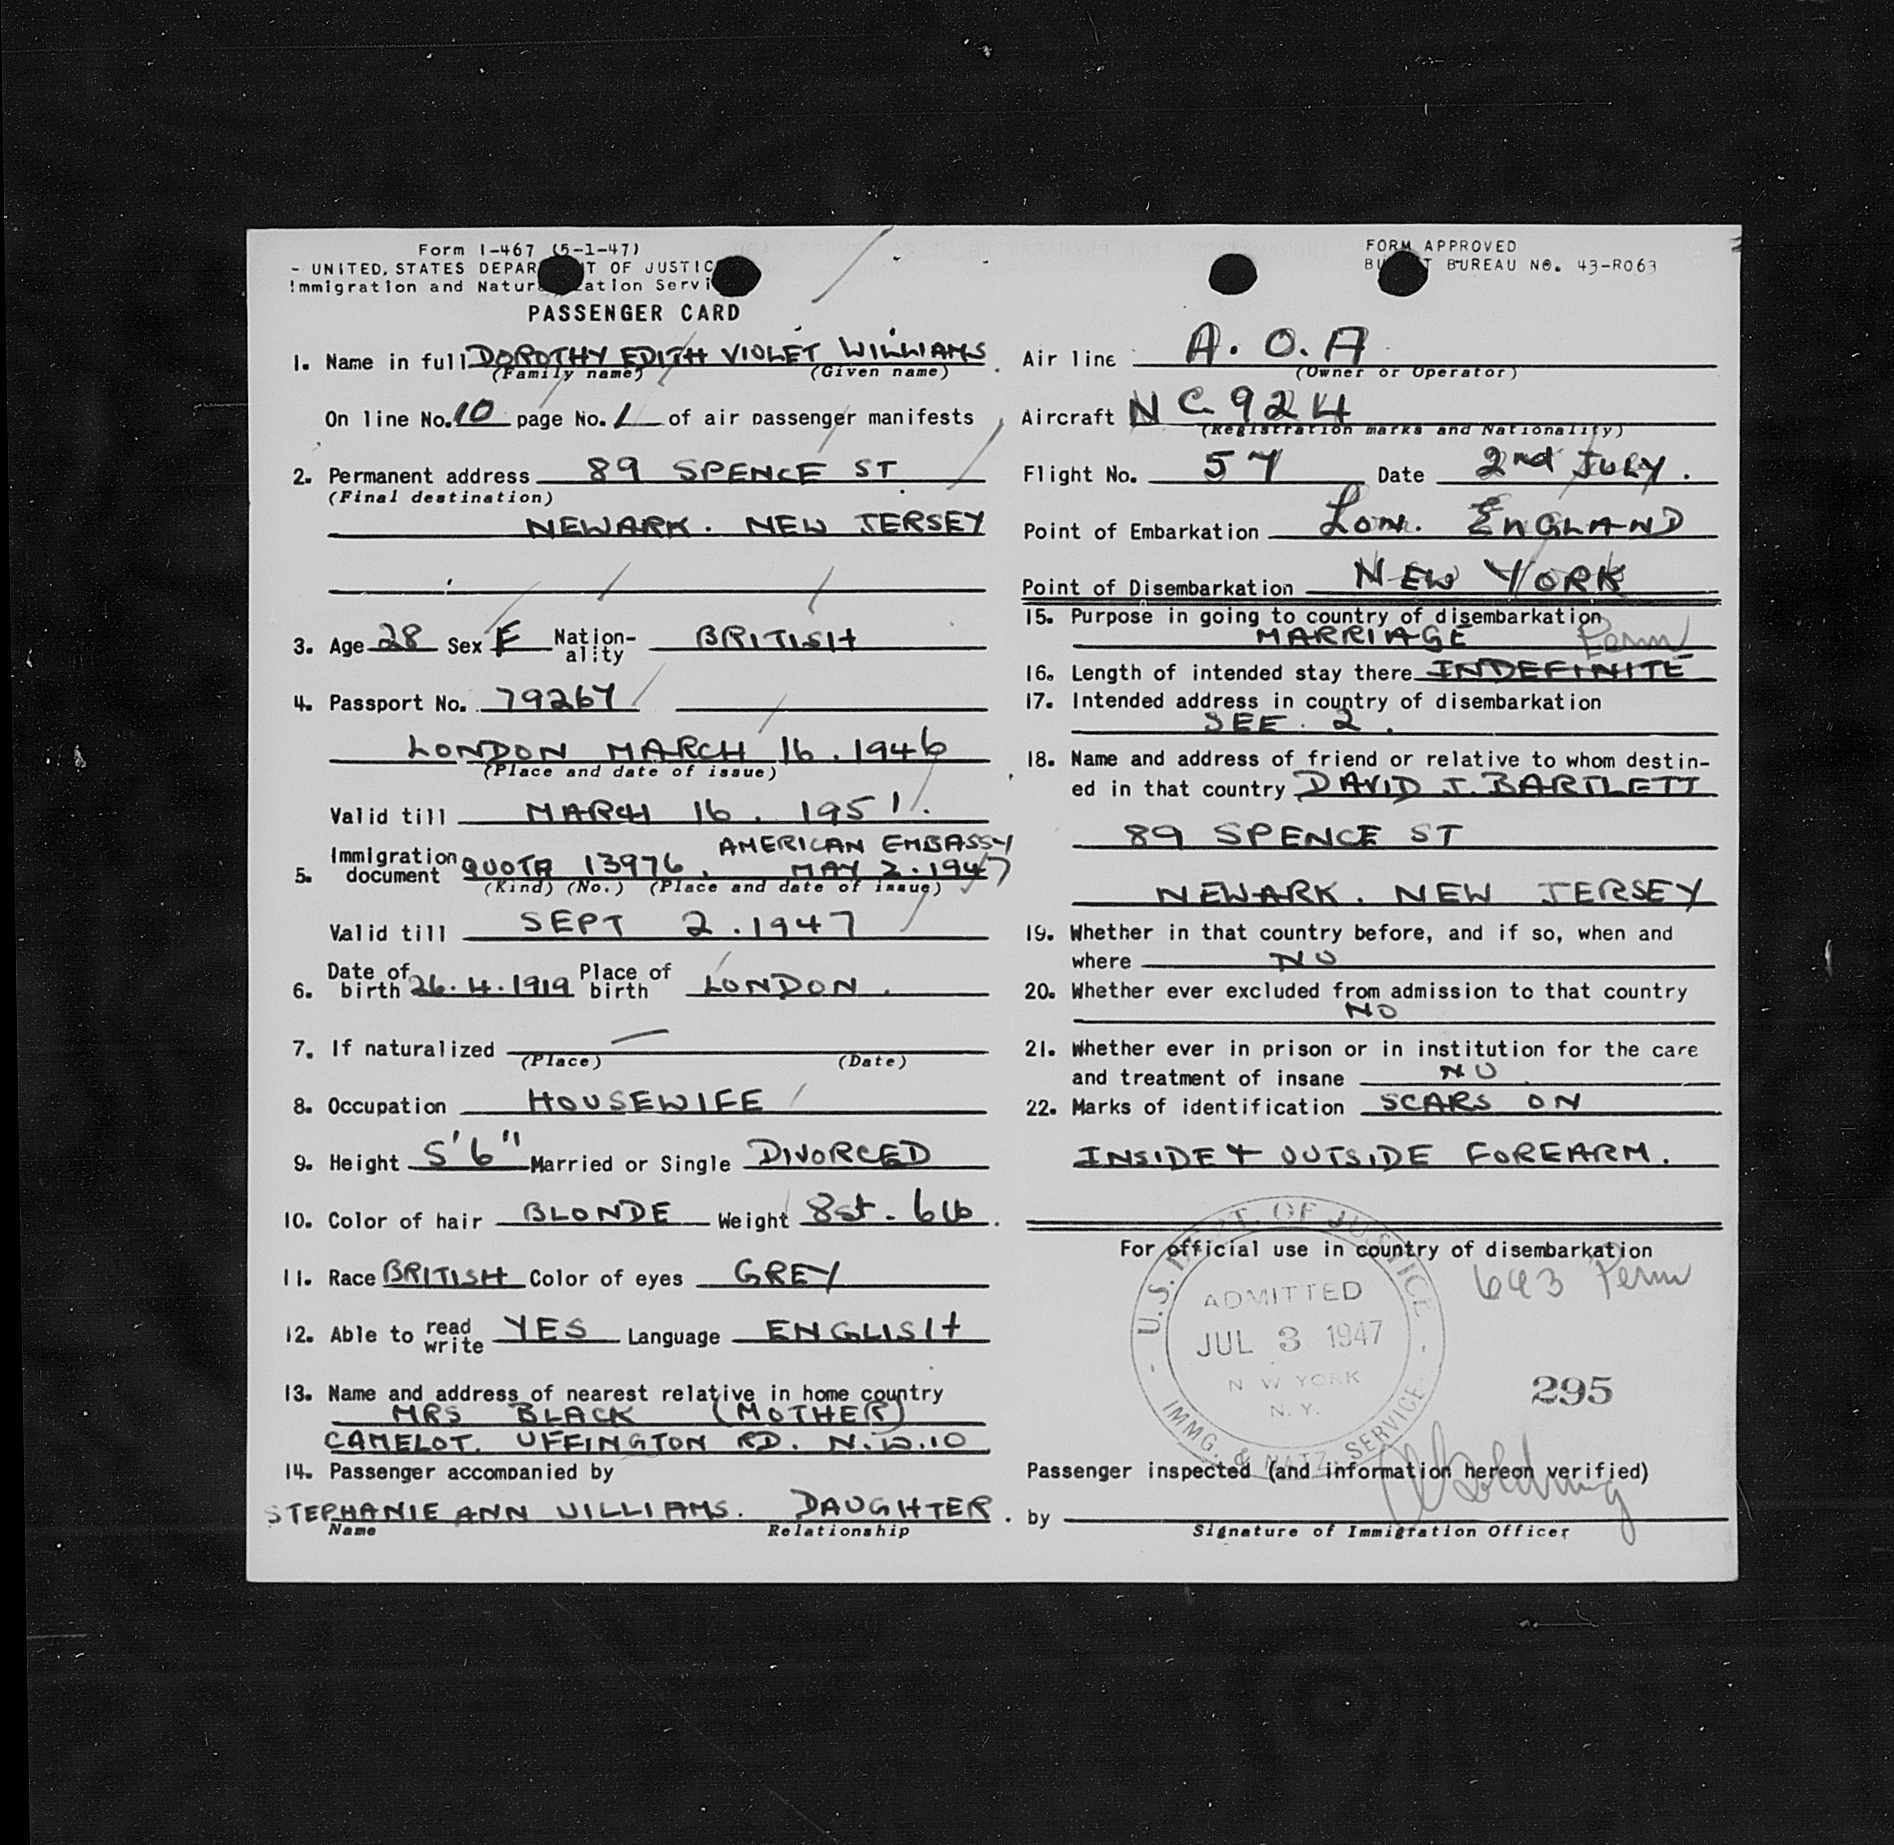 Form I-467 (5-1-47)
- UNITED STATES DEPAR T OF JUSTIC
Immigration and Natur ation Servi
PASSENGER CARD
1. Name in full DOROTHY EDITH VIOLET WILLIAMS
(Family name) (Given name)
On line No. 10 page No. 1 of air passenger manifests
2. Permanent address 89 SPENCE ST
(Final destination)
NEWARK. NEW JERSEY
3. Age 28 Sex F Nation-ality BRITISH
4. Passport No. 79267
LONDON MARCH 16. 1946
(Place and date of issue)
Valid till MARCH 16. 1951.
AMERICAN EMBASSY
5. Immigration document QUOTA 13976, MAY 2. 1947
(Kind) (No.) (Place and date of issue)
Valid till SEPT 2. 1947
6. Date of birth 26.4.1919 Place of birth LONDON.
7. If naturalized —
(Place) (Date)
8. Occupation HOUSEWIFE
9. Height 5'6" Married or Single DIVORCED
10. Color of hair BLONDE Weight 8st. 6lb.
11. Race BRITISH Color of eyes GREY
12. Able to read write YES Language ENGLISH
13. Name and address of nearest relative in home country
MRS BLACK (MOTHER)
CAMELOT. UFFINGTON RD. N.W.10
14. Passenger accompanied by
STEPHANIE ANN WILLIAMS. DAUGHTER.
Name Relationship
FORM APPROVED
BU T BUREAU NO. 43-R063
Air line A.O.A
(Owner or Operator)
Aircraft NC 924
(Registration marks and Nationality)
Flight No. 57 Date 2nd JULY.
Point of Embarkation Lon. ENGLAND
Point of Disembarkation NEW YORK
15. Purpose in going to country of disembarkation
MARRIAGE Perm
16. Length of intended stay there INDEFINITE
17. Intended address in country of disembarkation
SEE. 2.
18. Name and address of friend or relative to whom destin-
ed in that country DAVID J. BARTLETT
89 SPENCE ST
NEWARK. NEW JERSEY
19. Whether in that country before, and if so, when and
where NO
20. Whether ever excluded from admission to that country
NO
21. Whether ever in prison or in institution for the care
and treatment of insane NO
22. Marks of identification SCARS ON
INSIDE + OUTSIDE FOREARM.
For official use in country of disembarkation
693 Perm
U.S. DEPT. OF JUSTICE
ADMITTED
JUL 3 1947
NEW YORK
N.Y.
IMMG. & NATZ. SERVICE
295
Passenger inspected (and information hereon verified)
by
Signature of Immigration Officer